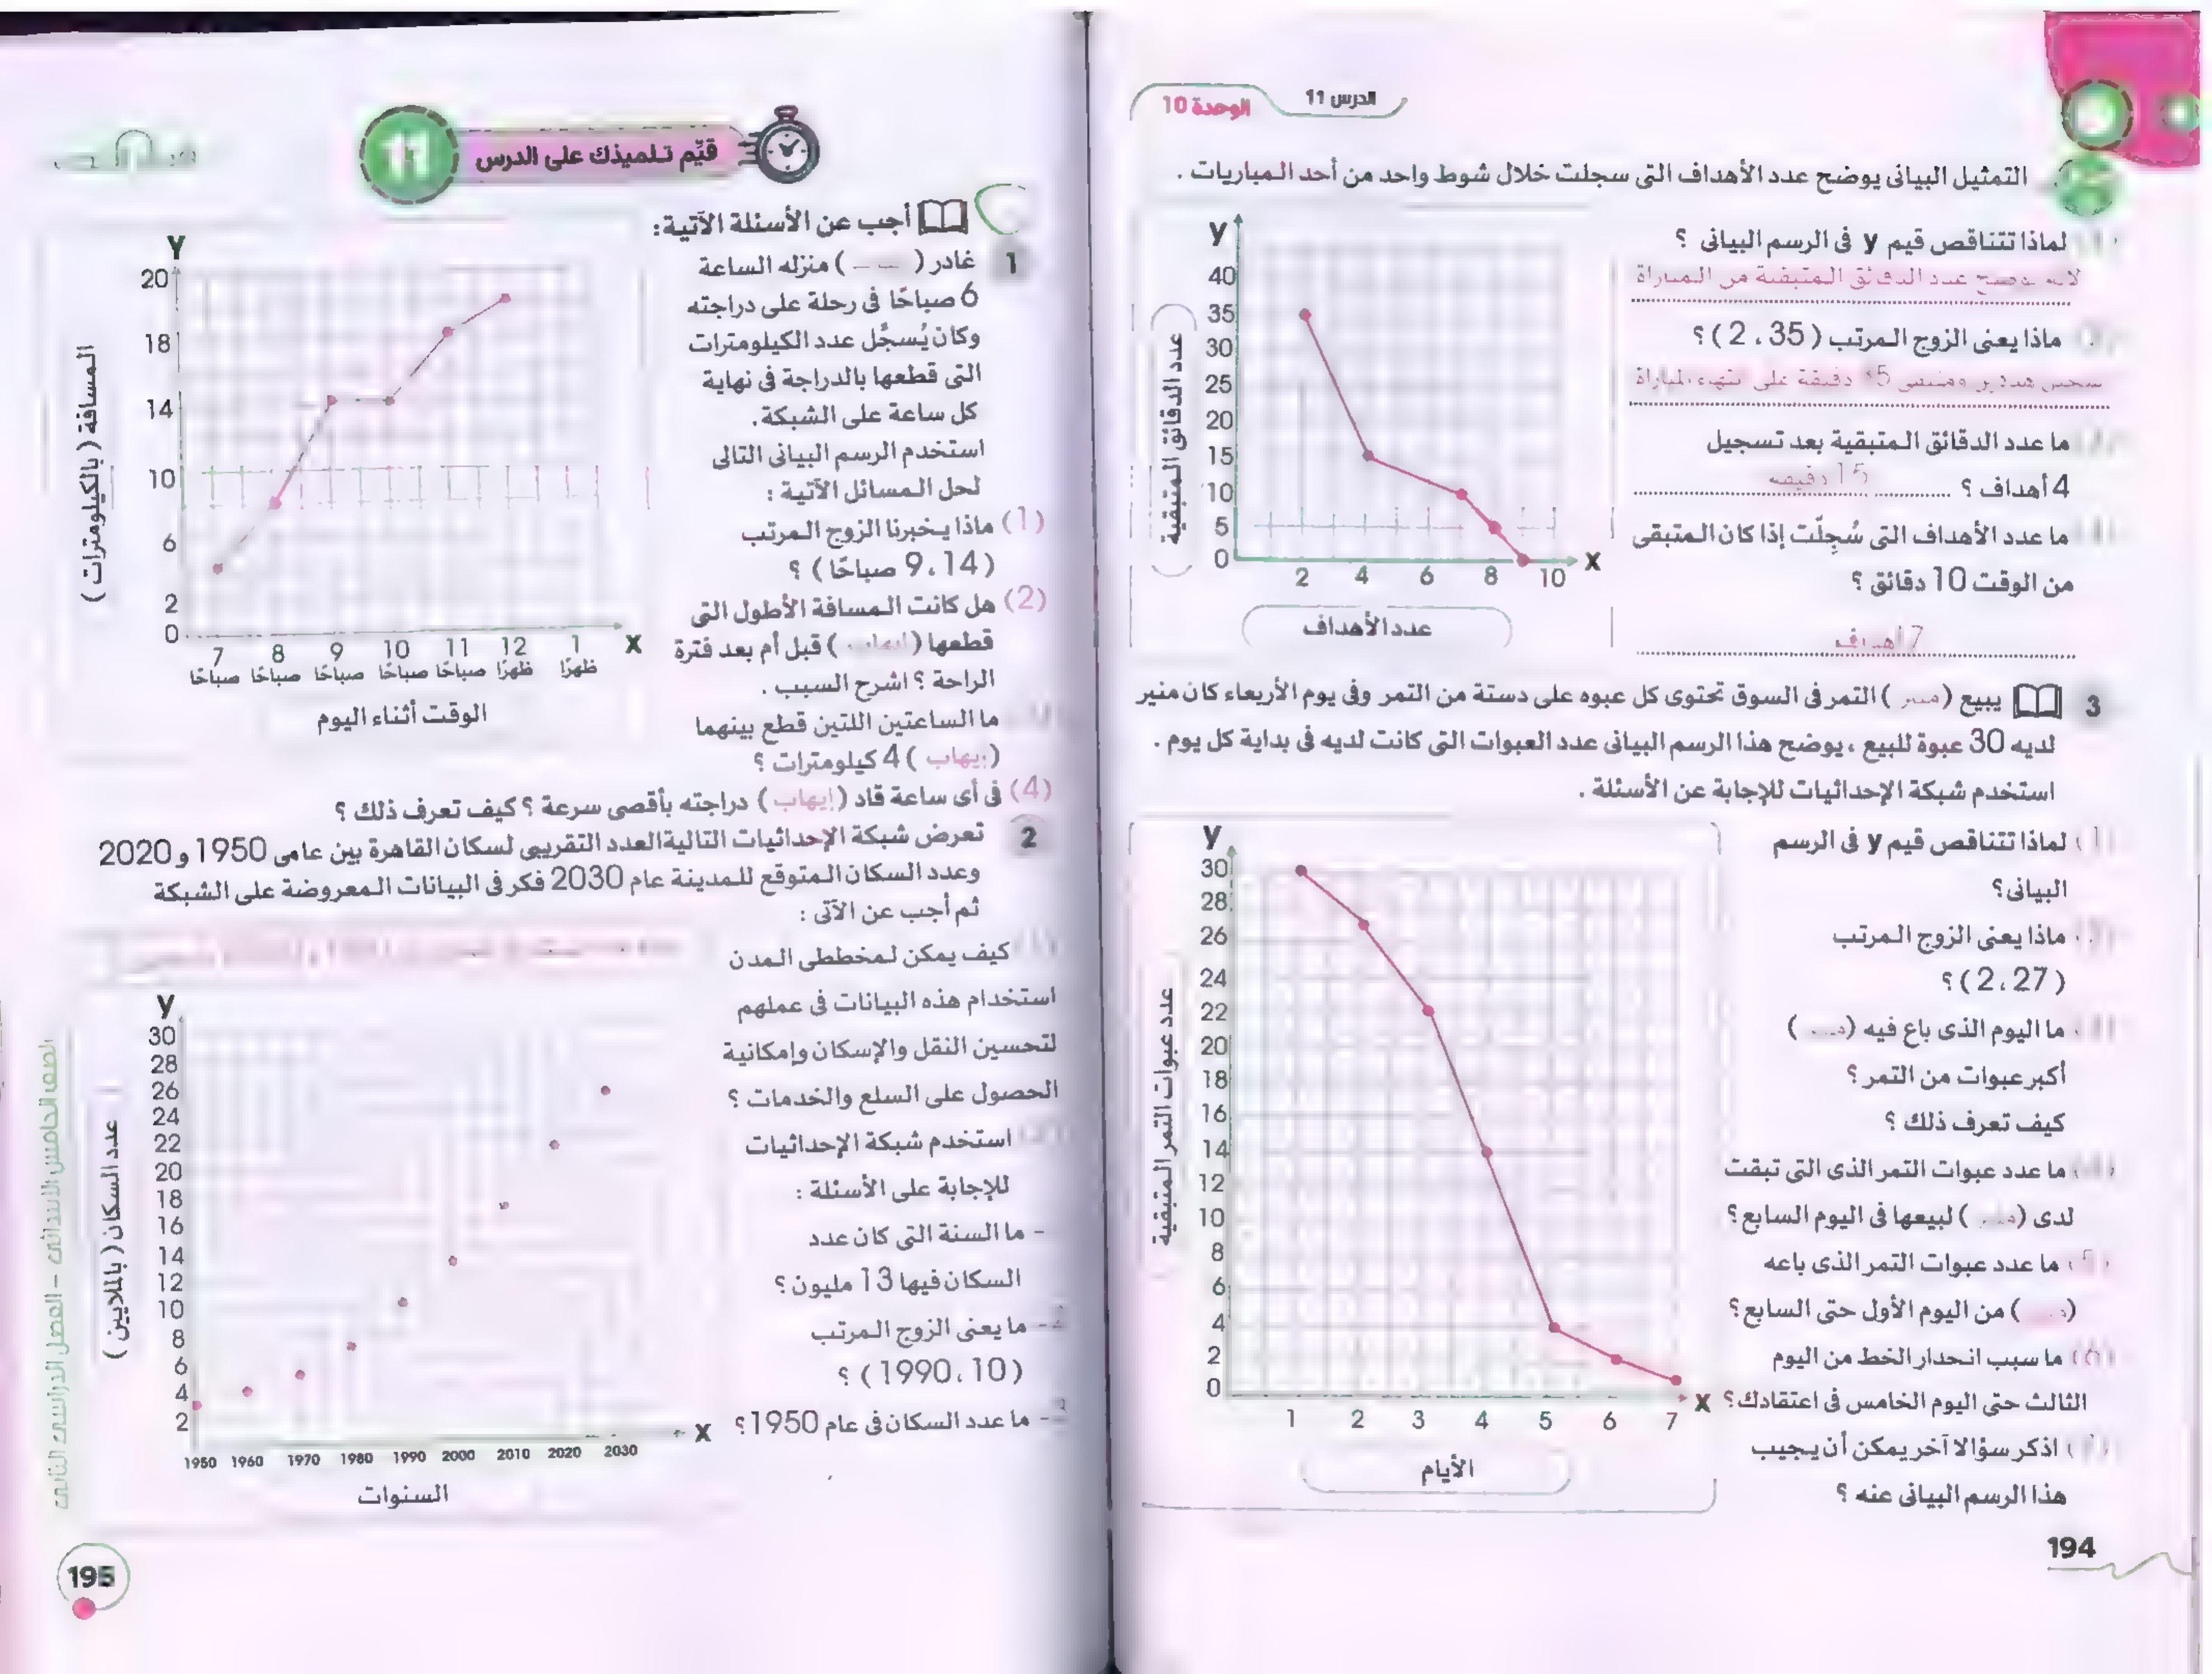 الدرس 11
الوحدة 10
التمثيل البيانى يوضح عدد الأهداف التى سجلت خلال شوط واحد من أحد المباريات .
لماذا تتناقص قيم y فى الرسم البيانى ؟
عدد الدقائق المتبقية من المباراة
ماذا يعنى الزوج المرتب (2 ، 35) ؟
دقيقة على انتهاء المباراة
ما عدد الدقائق المتبقية بعد تسجيل
4 أهداف ؟ 15 دقيقة
ما عدد الأهداف التى سُجِلّت إذا كان المتبقى
من الوقت 10 دقائق ؟
7 أهداف
y
40
35
30
25
20
15
10
5
0
2 4 6 8 10 x
عدد الدقائق المتبقية
عدد الأهداف
3 يبيع ( ) التمر فى السوق تحتوى كل عبوه على دستة من التمر وفى يوم الأربعاء كان منير
لديه 30 عبوة للبيع ، يوضح هذا الرسم البيانى عدد العبوات التى كانت لديه فى بداية كل يوم .
استخدم شبكة الإحداثيات للإجابة عن الأسئلة .
(1) لماذا تتناقص قيم y فى الرسم
البيانى؟
ماذا يعنى الزوج المرتب
(2،27) ؟
ما اليوم الذى باع فيه ( )
أكبر عبوات من التمر ؟
كيف تعرف ذلك ؟
ما عدد عبوات التمر الذى التى تبقت
لدى ( ) لبيعها فى اليوم السابع ؟
ما عدد عبوات التمر الذى باعه
( ) من اليوم الأول حتى السابع ؟
ما سبب انحدار الخط من اليوم
الثالث حتى اليوم الخامس فى اعتقادك ؟
اذكر سؤالا آخر يمكن أن يجيب
هذا الرسم البيانى عنه ؟
y
30
28
26
24
22
20
18
16
14
12
10
8
6
4
2
0
1 2 3 4 5 6 7 x
عدد عبوات التمر المتبقية
الأيام
194
11 قيِّم تلميذك على الدرس
أجب عن الأسئلة الآتية :
1 غادر ( ) منزله الساعة
6 صباحًا فى رحلة على دراجته
وكان يُسجِّل عدد الكيلومترات
التى قطعها بالدراجة فى نهاية
كل ساعة على الشبكة .
استخدم الرسم البيانى التالى
لحل المسائل الآتية :
(1) ماذا يخبرنا الزوج المرتب
(9،14 صباحًا) ؟
(2) هل كانت المسافة الأطول التى
قطعها (إيهاب) قبل أم بعد فترة
الراحة ؟ اشرح السبب .
ما الساعتين اللتين قطع بينهما
(إيهاب) 4 كيلومترات ؟
(4) فى أى ساعة قاد (إيهاب) دراجته بأقصى سرعة ؟ كيف تعرف ذلك ؟
Y
20
18
14
10
6
2
0
7 8 9 10 11 12 1 X
صباحًا صباحًا صباحًا صباحًا صباحًا ظهرًا ظهرًا
المسافة (بالكيلومترات)
الوقت أثناء اليوم
2 تعرض شبكة الإحداثيات التالية العدد التقريبى لسكان القاهرة بين عامى 1950 و 2020
وعدد السكان المتوقع للمدينة عام 2030 فكر فى البيانات المعروضة على الشبكة
ثم أجب عن الآتى :
كيف يمكن لمخططى المدن
استخدام هذه البيانات فى عملهم
لتحسين النقل والإسكان وإمكانية
الحصول على السلع والخدمات ؟
استخدم شبكة الإحداثيات
للإجابة على الأسئلة :
- ما السنة التى كان عدد
السكان فيها 13 مليون ؟
- ما يعنى الزوج المرتب
(1990،10) ؟
- ما عدد السكان فى عام 1950 ؟
y
30
28
26
24
22
20
18
16
14
12
10
8
6
4
2
1950 1960 1970 1980 1990 2000 2010 2020 2030 X
عدد السكان (بالملايين)
السنوات
الصف الخامس الابتدائى - الفصل الدراسى الثانى
195